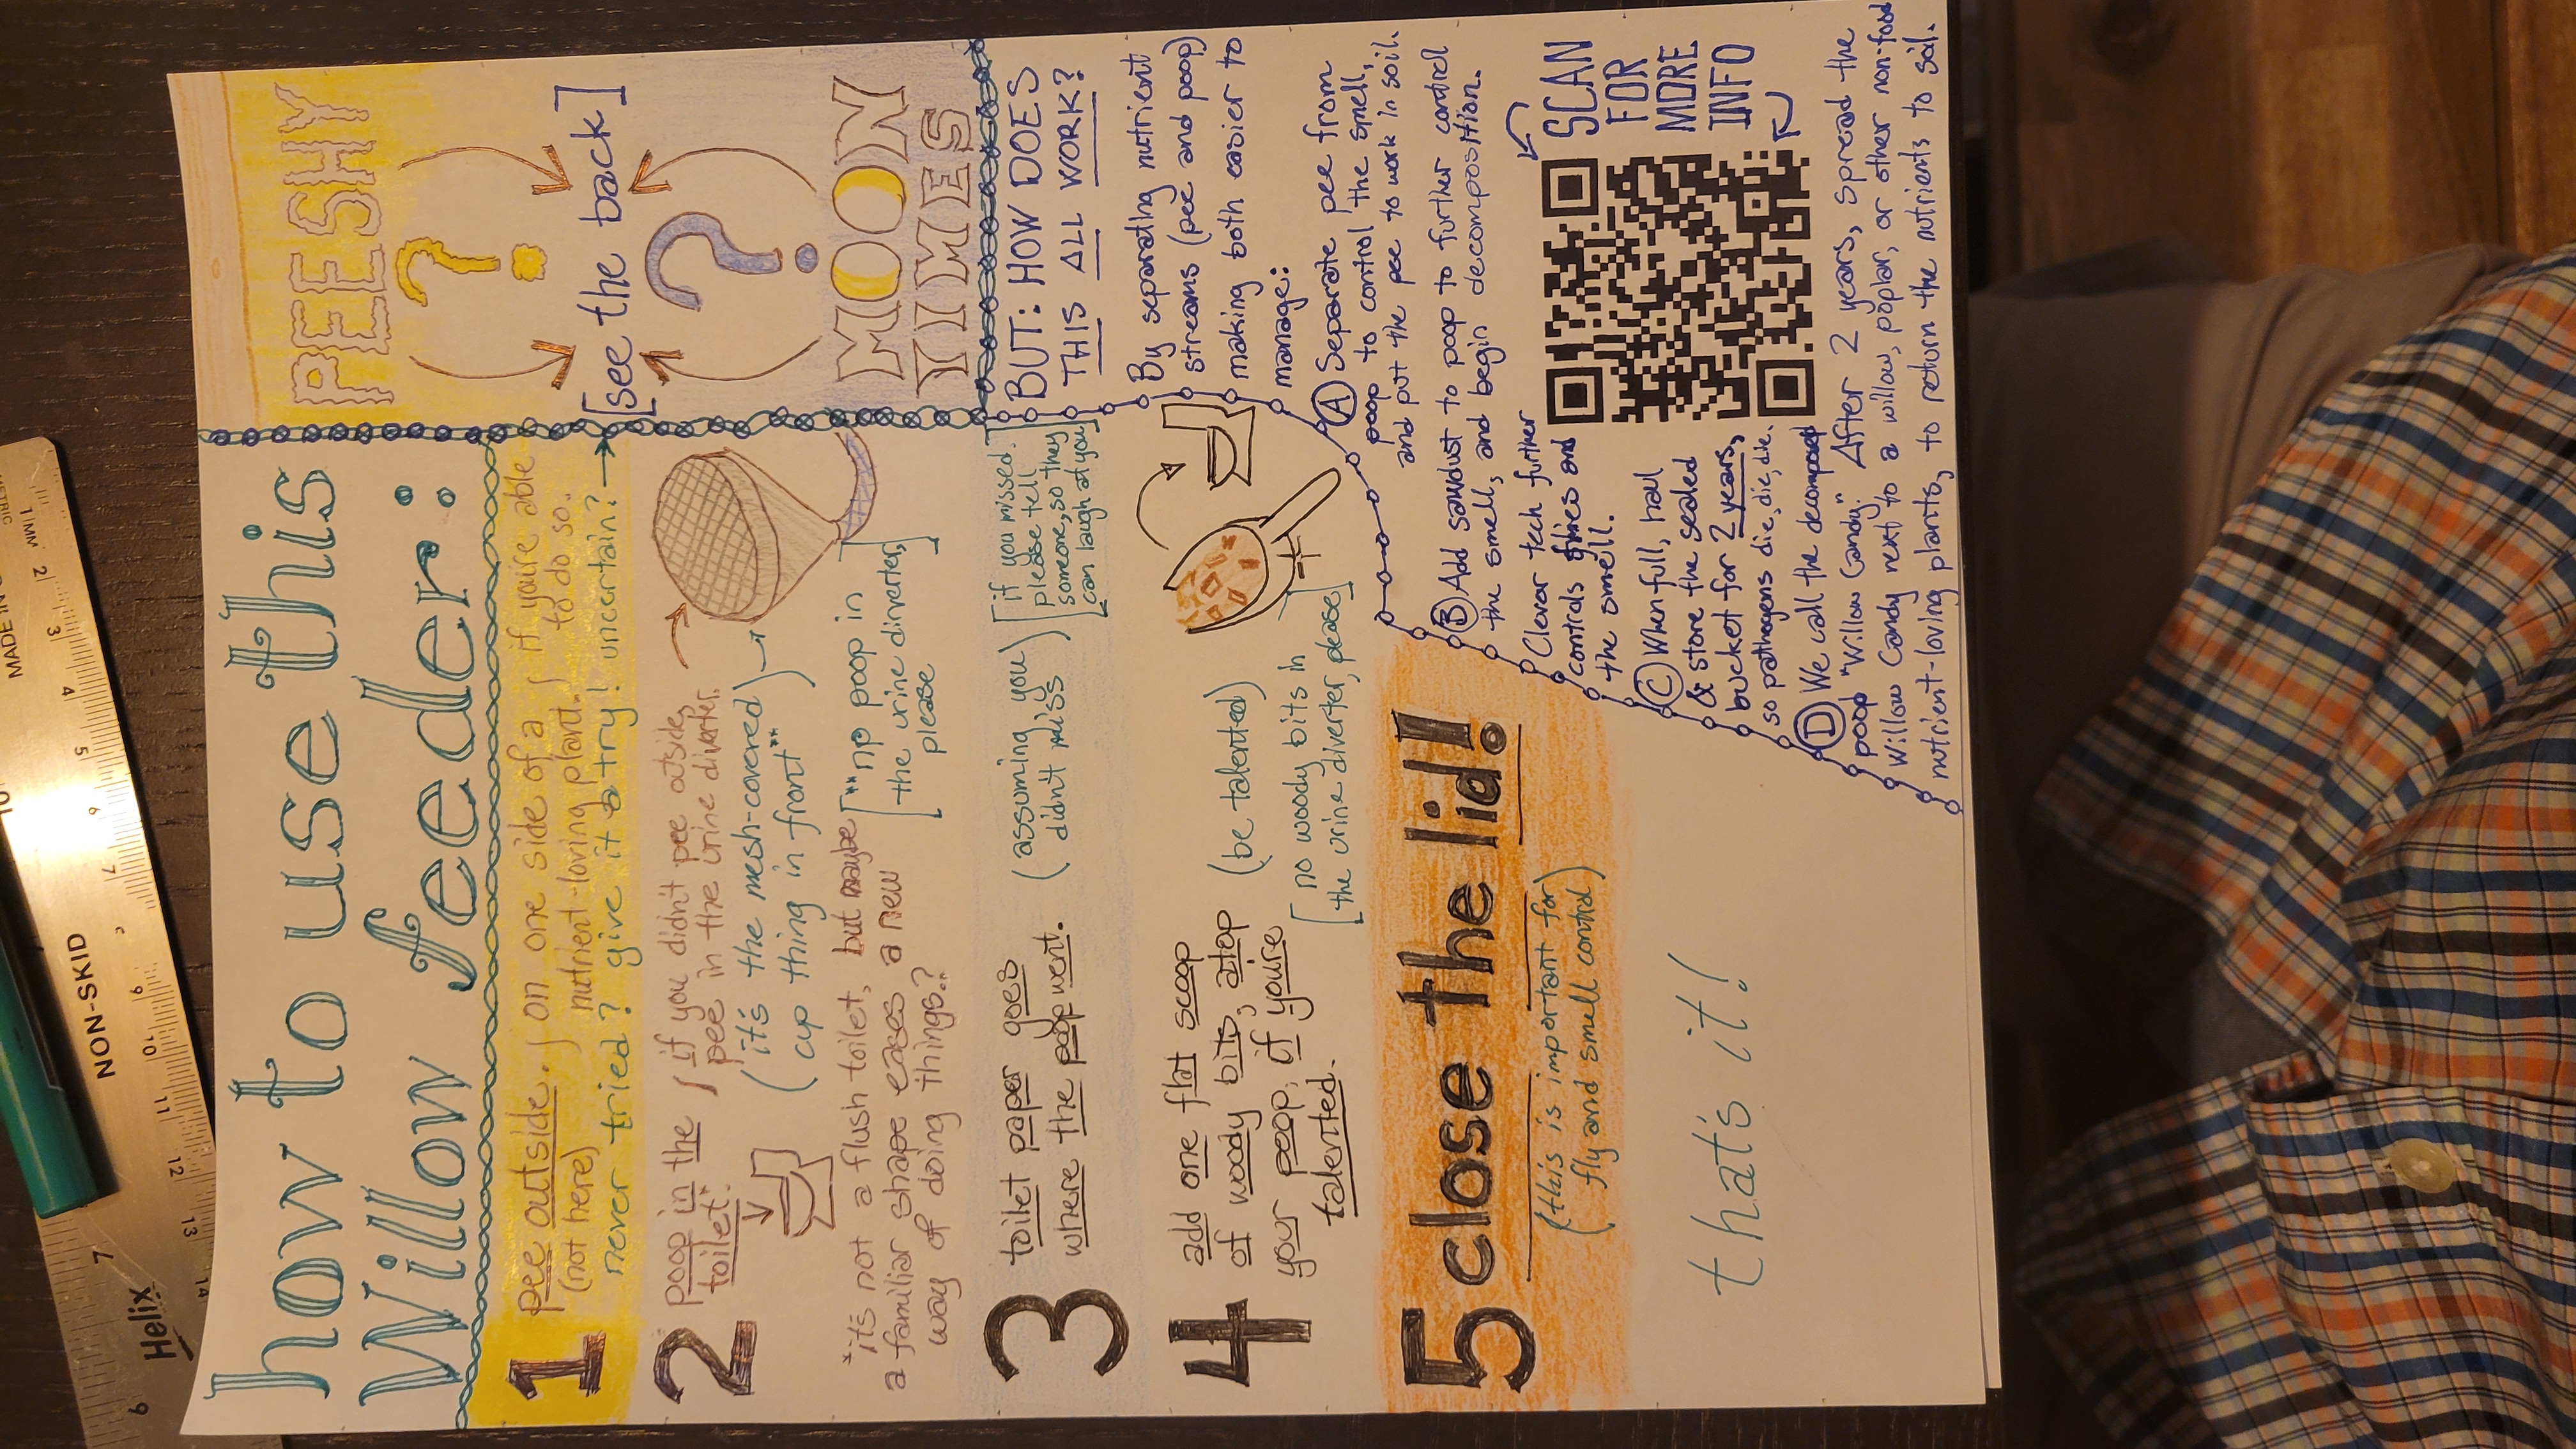 how to use this
Willow feeder:
1 pee outside. on one side of a if you're able
(not here) nutrient-loving plant. to do so..
never tried? give it a try! uncertain? →
2 poop in the if you didn't pee outside,
toilet* pee in the urine diverter.
(it's the mesh-covered)
(cup thing in front**)
*it's not a flush toilet, but maybe
a familiar shape eases a new
way of doing things..?
[**no poop in
the urine diverter,
please]
3 toilet paper goes
where the poop went.
(assuming you
didn't miss)
[if you missed..
please tell
someone, so they
can laugh at you]
4 add one flat scoop
of woody bits, atop
your poop, if you're
talented.
(be talented)
[no woody bits in
the urine diverter, please]
5 close the lid!
(this is important for)
(fly and smell control)
that's it!
PEESHY
?
[see the back]
?
MOON
YIMES
BUT: HOW DOES
THIS ALL WORK?
By separating nutrient
streams (pee and poop)
making both easier to
manage:
A Separate pee from
poop to control the smell,
and put the pee to work in soil.
B Add sawdust to poop to further control
the smell, and begin decomposition.
Clever tech further
controls flies and
the smell.
C When full, haul
& store the sealed
bucket for 2 years,
so pathogens die, die, die.
D We call the decomposed
poop "Willow Candy." After 2 years, spread the
Willow Candy next to a willow, poplar, or other non-food
nutrient-loving plants, to return the nutrients to soil.
SCAN
FOR
MORE
INFO
NON-SKID
Helix
MADE IN
METRIC
1 MM 2 3 4 5 6 7 9 10 11 12 13 14
6 7